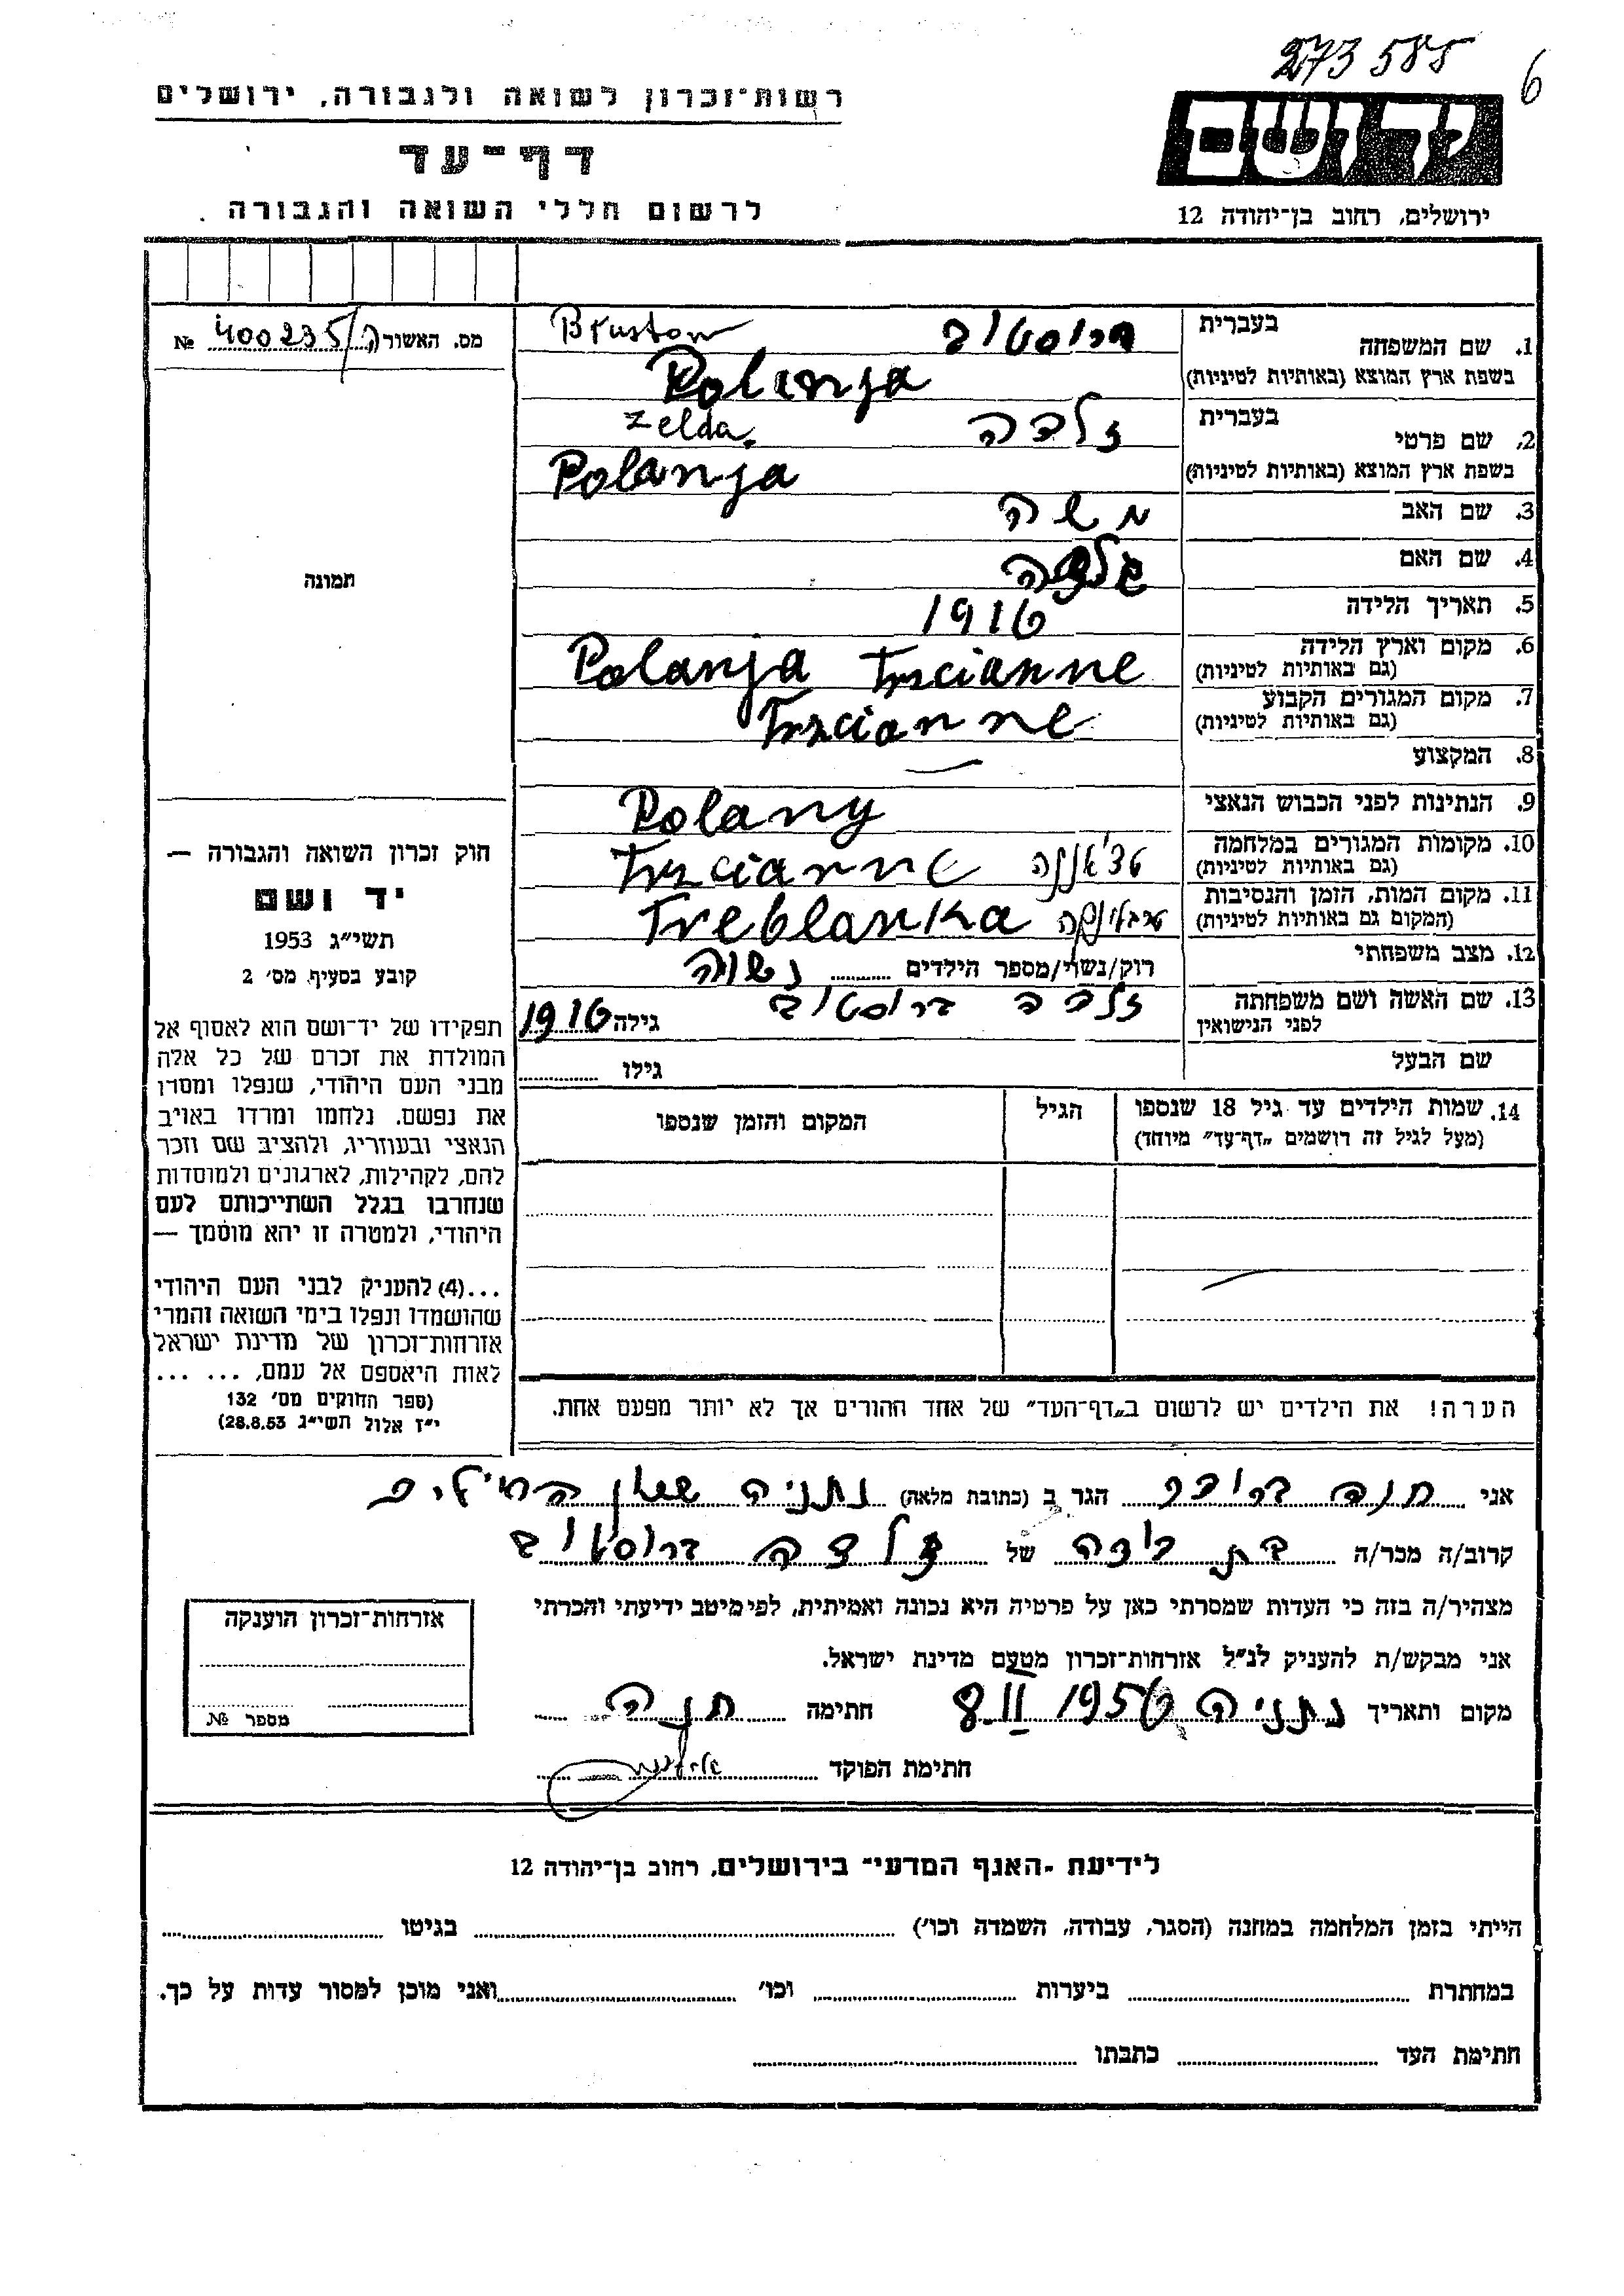 273 585
6
יד ושם
ירושלים, רחוב בן־יהודה 12
רשות־זכרון לשואה ולגבורה, ירושלים
דף־עד
לרשום חללי השואה והגבורה
מס. האשורה 400235/ №
1. שם המשפחה
בעברית ברוסטוב Brustow
בשפת ארץ המוצא (באותיות לטיניות) Polanja
2. שם פרטי
בעברית זלדה Zelda
בשפת ארץ המוצא (באותיות לטיניות) Polanja
3. שם האב משה
4. שם האם
5. תאריך הלידה 1916
6. מקום וארץ הלידה
(גם באותיות לטיניות) Polanja Trscianne
7. מקום המגורים הקבוע
(גם באותיות לטיניות) Trzcianne
8. המקצוע —
9. הנתינות לפני הכבוש הנאצי Polany
10. מקומות המגורים במלחמה
(גם באותיות לטיניות) Trzcianne
11. מקום המות, הזמן והנסיבות
(המקום גם באותיות לטיניות) טרבלינקה Treblanka
12. מצב משפחתי רוק/נשוי/מספר הילדים נשוה
13. שם האשה ושם משפחתה
לפני הנישואין זלדה ברוסטוב גילה 1916
שם הבעל גילו
14. שמות הילדים עד גיל 18 שנספו
(מעל לגיל זה רושמים „דף־עד” מיוחד)
הגיל
המקום והזמן שנספו
הערה! את הילדים יש לרשום ב„דף־העד” של אחד ההורים אך לא יותר מפעם אחת.
תמונה
חוק זכרון השואה והגבורה —
יד ושם
תשי״ג 1953
קובע בסעיף מס׳ 2
תפקידו של יד־ושם הוא לאסוף אל
המולדת את זכרם של כל אלה
מבני העם היהודי, שנפלו ומסרו
את נפשם, נלחמו ומרדו באויב
הנאצי ובעוזריו, ולהציב שם וזכר
להם, לקהילות, לארגונים ולמוסדות
שנחרבו בגלל השתייכותם לעם
היהודי, ולמטרה זו יהא מוסמך —
...(4) להעניק לבני העם היהודי
שהושמדו ונפלו בימי השואה והמרי
אזרחות־זכרון של מדינת ישראל
לאות היאספם אל עמם, ... ...
(ספר החוקים מס׳ 132
י״ז אלול תשי״ג 28.8.53)
אני חנה הגר ב (כתובת מלאה) נתניה
קרוב/ה מכר/ה בת דודה של זלדה ברוסטוב
מצהיר/ה בזה כי העדות שמסרתי כאן על פרטיה היא נכונה ואמיתית, לפי מיטב ידיעתי והכרתי
אני מבקש/ת להעניק לנ״ל אזרחות־זכרון מטעם מדינת ישראל.
מקום ותאריך נתניה 8 II 1956 חתימה חנה
חתימת הפוקד
אזרחות־זכרון הוענקה
מספר №
לידיעת ״האגף המדעי״ בירושלים, רחוב בן־יהודה 12
הייתי בזמן המלחמה במחנה (הסגר, עבודה, השמדה וכו׳) בגיטו
במחתרת ביערות וכו׳ ואני מוכן למסור עדות על כך.
חתימת העד כתבתו